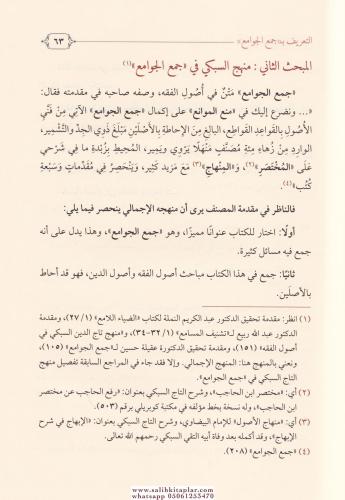 التعريف بـ«جمع الجوامع»
٦٣
المبحث الثاني: منهج السبكي في «جمع الجوامع»(١)
«جمع الجوامع» مَتْنٌ في أُصُولِ الفقه، وصفه صاحبه في مقدمته فقال:
«... ونضرع إليك في «منع الموانع» على إكمال «جمع الجوامع» الآتي مِنْ فَنَّيِ
الأُصُولِ بالقواعِدِ القَواطِعِ، البالغِ مِنَ الإحاطةِ بالأَصْلَيْنِ مَبْلَغَ ذَوِي الجِدِّ والتَّشْمِيرِ،
الواردِ مِنْ زُهاءِ مِئةِ مُصَنَّفٍ مَنْهَلًا يَرْوِي ويَمِير، المحيطِ بِزُبْدةِ ما في شَرْحَيَّ
عَلَى «المُخْتَصَرِ»(٢)، وَ«المِنْهاجِ»(٣) مَعَ مَزِيدٍ كَثِيرٍ، ويَنْحَصِرُ في مُقَدِّماتٍ وَسَبْعَةِ
كُتُبٍ»(٤).
فالناظر في مقدمة المصنف يرى أن منهجه الإجمالي ينحصر فيما يلي:
أولًا: اختار للكتاب عنوانًا مميزًا، وهو «جمع الجوامع»، وهذا يدل على أنه
جمع فيه مسائل كثيرة.
ثانيًا: جمع في هذا الكتاب مباحث أصول الفقه وأصول الدين، فهو قد أحاط
بالأصلَين.
(١) انظر: مقدمة تحقيق الدكتور عبد الكريم النملة لكتاب «الضياء اللامع» (١/ ٢٧)، ومقدمة
الدكتور عبد الله ربيع لـ«تشنيف المسامع» (١/ ٣٢-٣٤)، و«منهج تاج الدين السبكي في
أصول فقه» (١٥١)، ومقدمة تحقيق الدكتورة عقيلة حسين لـ«جمع الجوامع» (١٠٥)،
ونعني بالمنهج هنا: المنهج الإجمالي، وإلا فقد جاء في المراجع السابقة تفصيل منهج
التاج السبكي في «جمع الجوامع».
(٢) أي: «مختصر ابن الحاجب»، وشرح التاج السبكي بعنوان: «رفع الحاجب عن مختصر
ابن الحاجب»، وله نسخة بخط مؤلفه في مكتبة كوبريلي برقم (٥٠٣).
(٣) أي: «منهاج الأصول» للإمام البيضاوي، وشرح التاج السبكي بعنوان: «الإبهاج في شرح
الإبهاج»، وقد أكمله بعد وفاة أبيه التقي السبكي رحمهم الله تعالى.
(٤) «جمع الجوامع» (٢٠٨).
www.salihkitaplar.com
whatsapp 05061253470